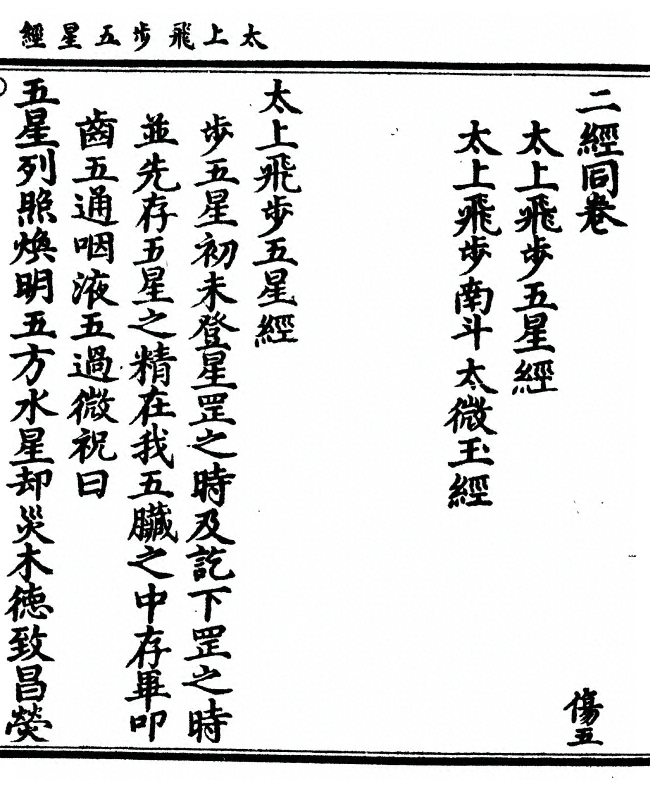 太上飛步五星經
二經同卷
傷五
太上飛步五星經
太上飛步南斗太微玉經
太上飛步五星經
步五星初未登星罡之時及訖下罡之時
並先存五星之精在我五臟之中存畢叩
齒五通咽液五過微祝曰
五星列照煥明五方水星却災木德致昌熒